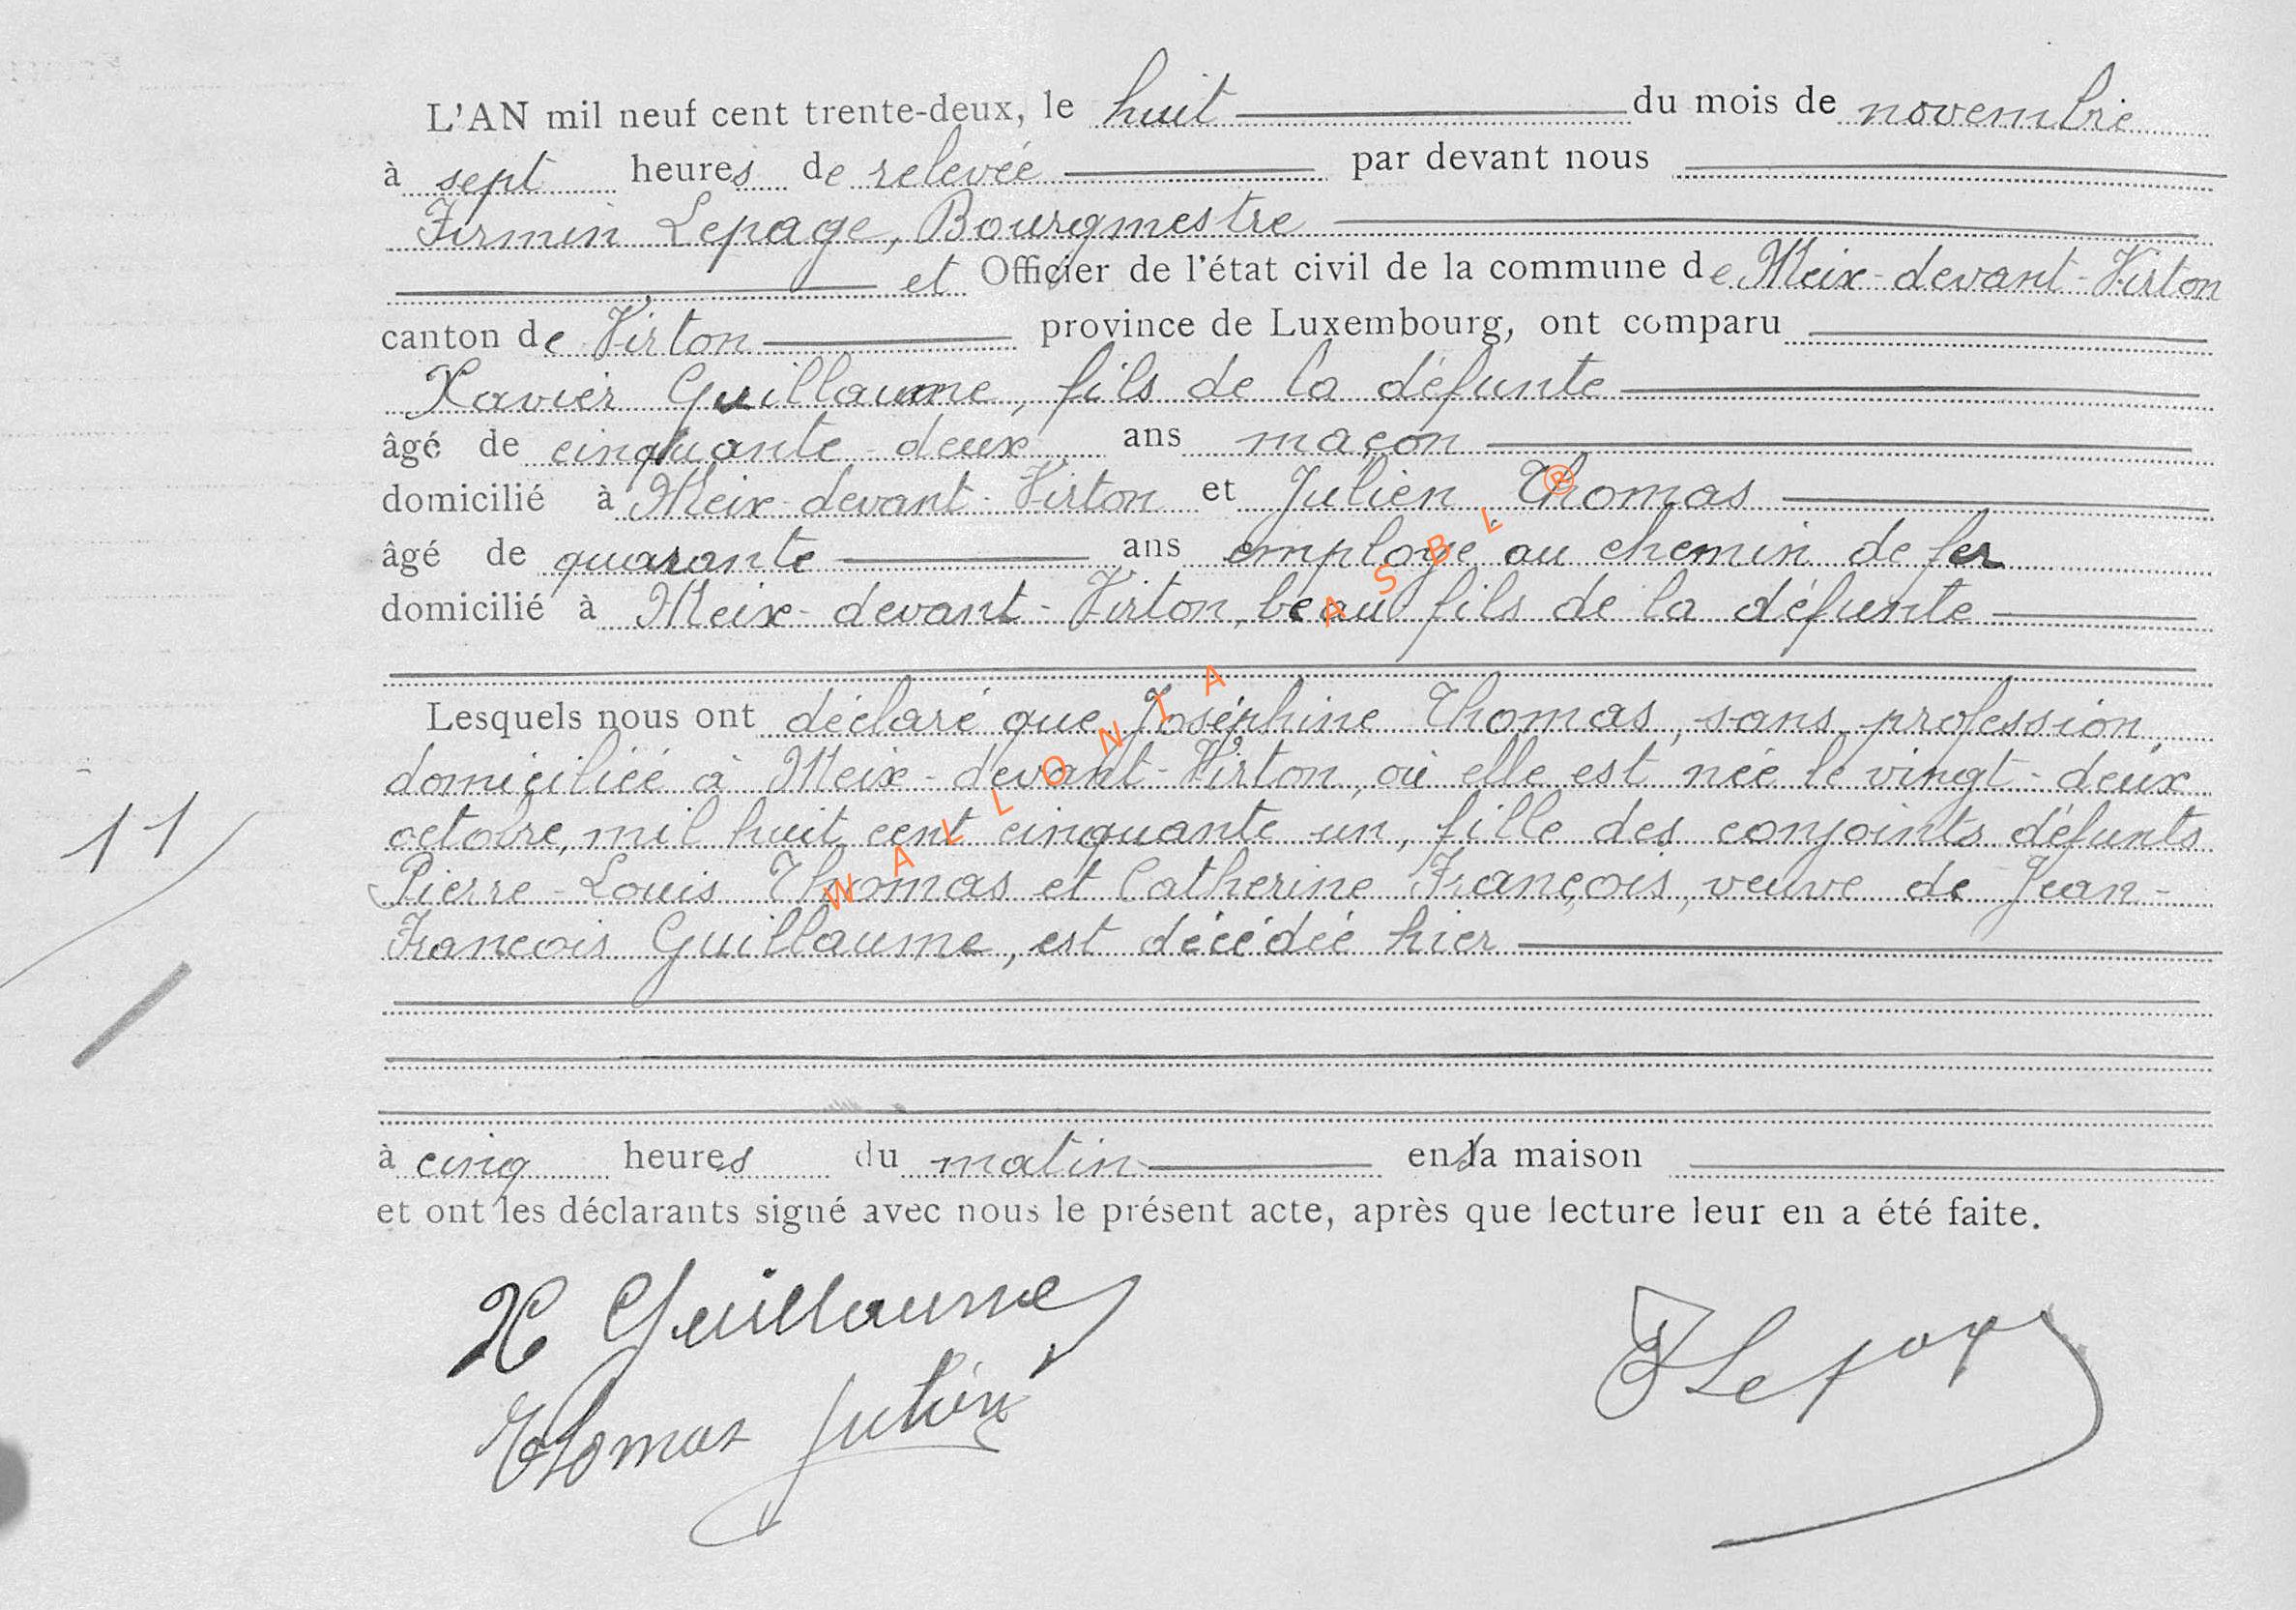 L'AN mil neuf cent trente-deux, le huit du mois de novembre
à sept heures de relevée par devant nous
Firmin Lepage, Bourgmestre
et Officier de l'état civil de la commune de Meix-devant-Virton
canton de Virton province de Luxembourg, ont comparu
Xavier Guillaume, fils de la défunte
âgé de cinquante-deux ans maçon
domicilié à Meix-devant-Virton et Julien Thomas
âgé de quarante ans employé au chemin de fer
domicilié à Meix-devant-Virton, beau fils de la défunte
Lesquels nous ont déclaré que Joséphine Thomas, sans profession,
domiciliée à Meix-devant-Virton, où elle est née le vingt-deux
octobre, mil huit cent cinquante un, fille des conjoints défunts
11
Pierre-Louis Thomas et Catherine François, veuve de Jean-
François Guillaume, est décédée hier
à cinq heures du matin en sa maison
et ont les déclarants signé avec nous le présent acte, après que lecture leur en a été faite.
X Guillaume
Thomas Julien
F Lepage
WALLONIA ASBL ®